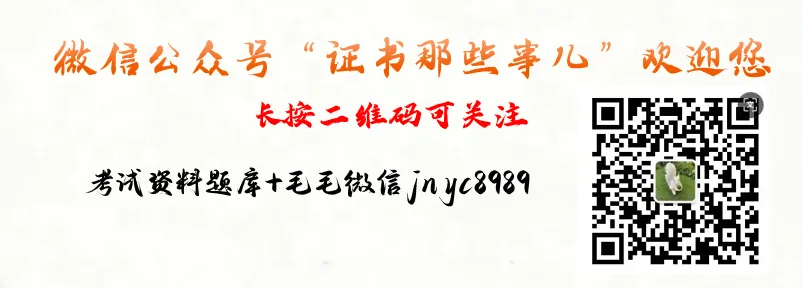 微信公众号“证书那些事儿”欢迎您
长按二维码可关注
考试资料题库+毛毛微信jnyc8989